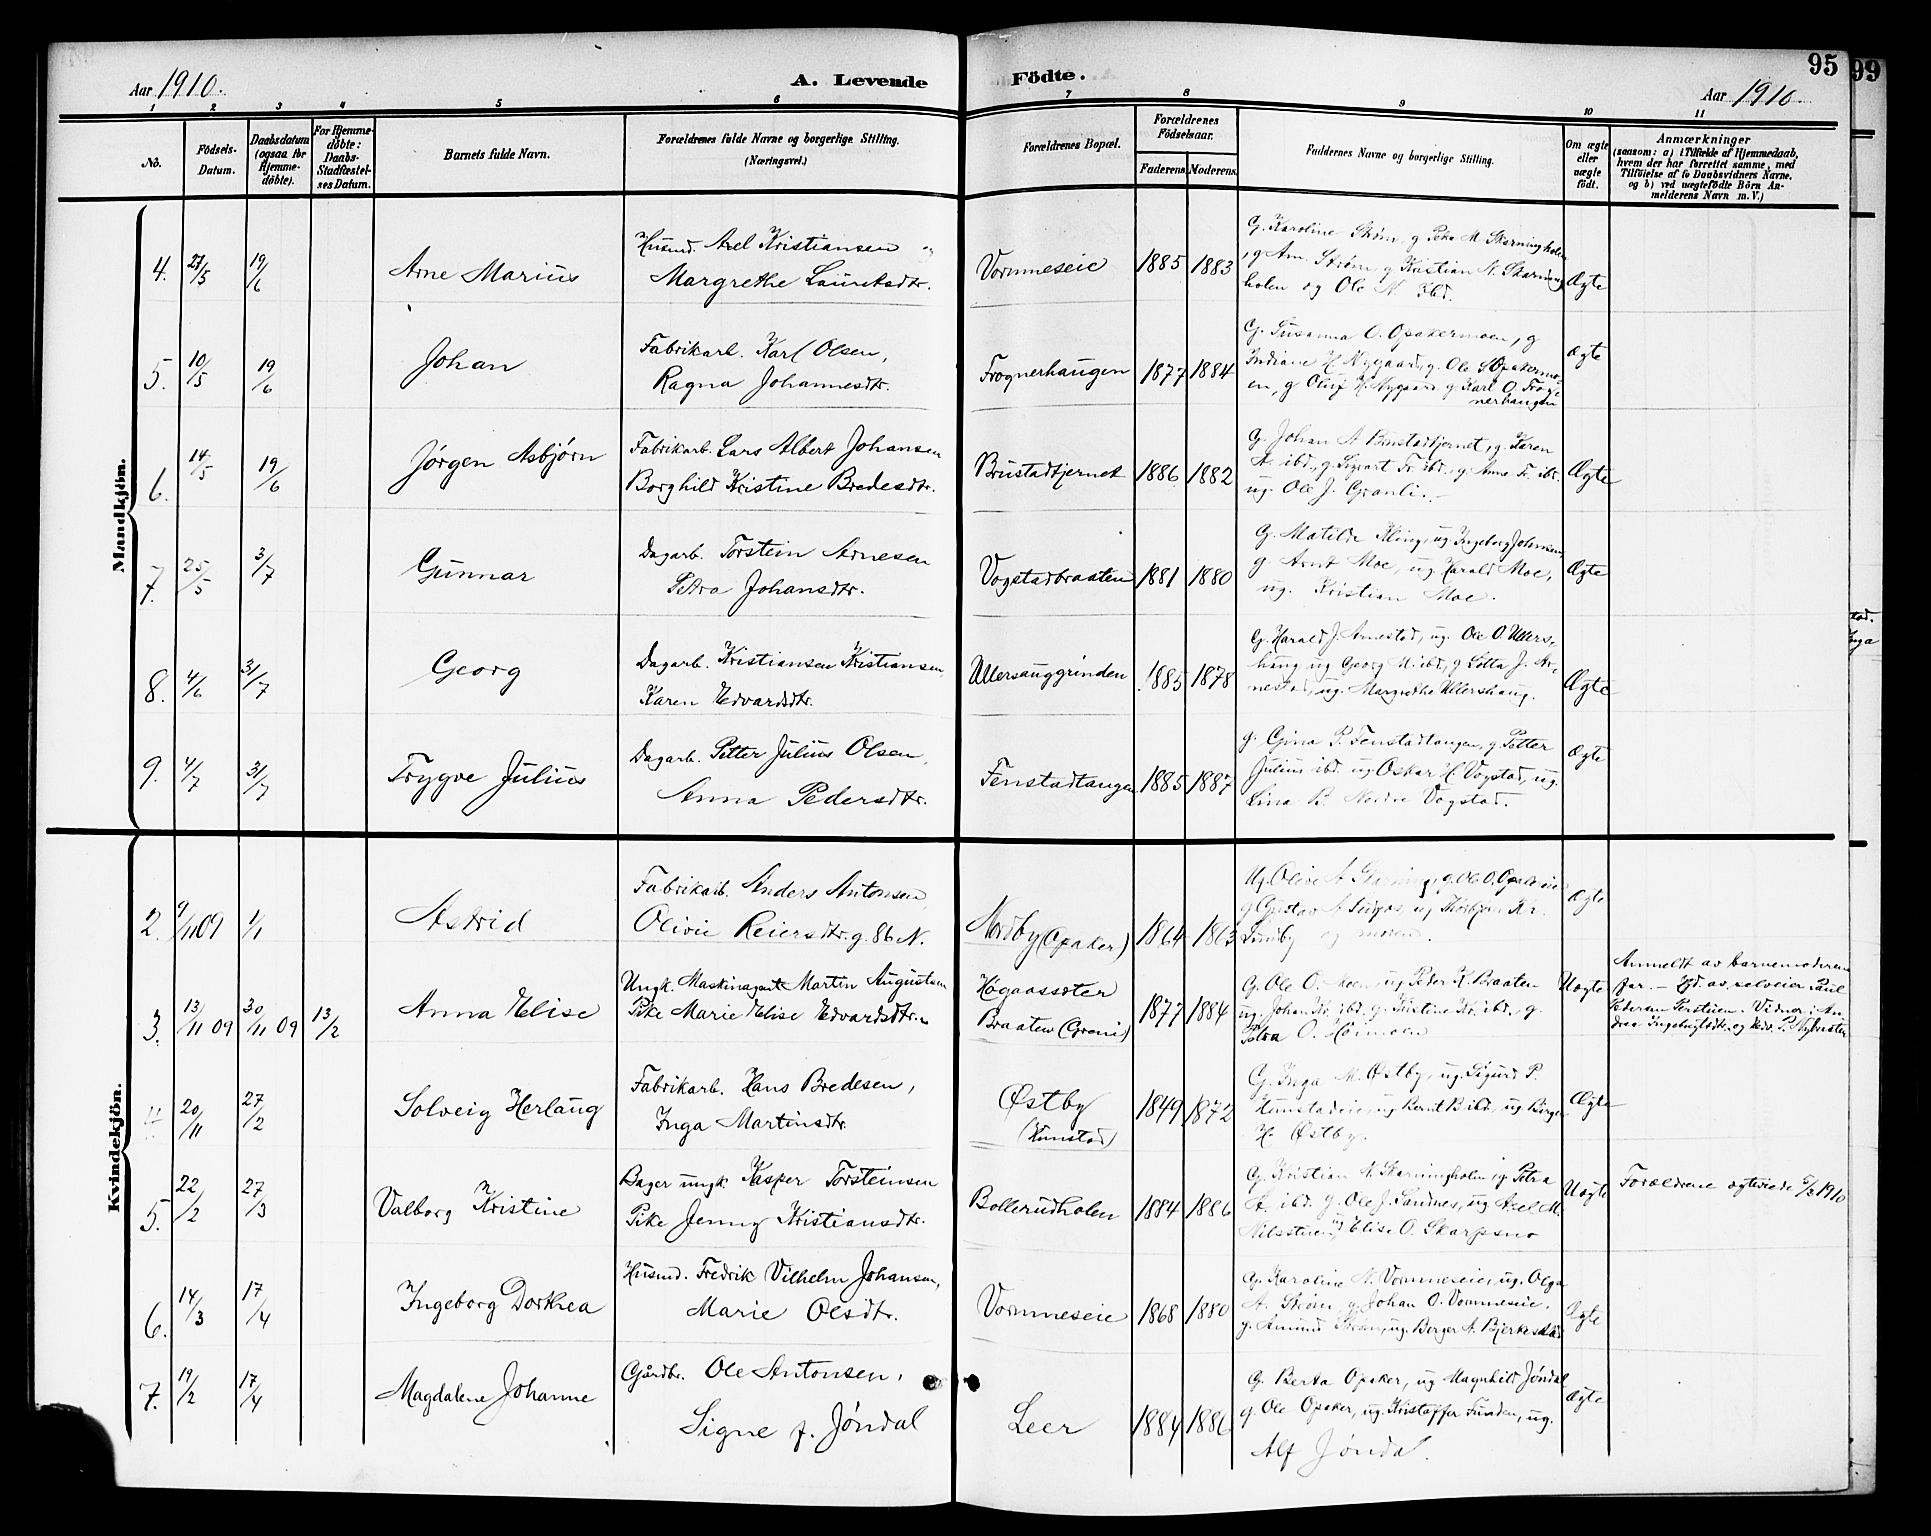 95
99
Aar 1910.
A. Levende
Födte.
Aar 1910.
1 2 3 4 5 6 7 8 9 10 11
No.
Födsels-
Datum.
Daabsdatum
(ogsaa for
Hjemme-
döbte).
For Hjemme-
döbte:
Daabs-
Stadfæstel-
ses Datum.
Barnets fulde Navn.
Forældrenes fulde Navne og borgerlige Stilling.
(Næringsvei.)
Forældrenes Bopæl.
Forældrenes
Födselsaar.
Faderens.
Moderens.
Faddernes Navne og borgerlige Stilling.
Om ægte
eller
uægte
födt.
Anmærkninger
(saasom: a) i Tilfælde af Hjemmedaab,
hvem der har forrettet samme, med
Tilföielse af to Daabsvidners Navne.
og b) ved uægtefödte Börn An-
melderens Navn m. V.)
Mandkjön.
4. 27/5 19/6 Arne Marius
Husmd. Axel Kristiansen og
Margrethe Lauritsdtr.
Vormneseie 1885 1883
G. Karoline Strøm, g Peka M. Skarningholen
, g Am. Strøm, g Kristian N. Skarning
holen og Ole N. Ibd.
Ægte
5. 10/5 19/6 Johan
Fabrikarb. Karl Olsen,
Ragna Johannesdtr.
Frognerhaugen 1877 1884
G. Susanna O. Opakermoen, g
Indiane H. Nygaard, g. Ole S Opakermo-
en, g Oluf H. Nygaard g Karl O. Frog-
nerhaugen
Ægte
6. 14/5 19/6 Jørgen Asbjørn
Fabrikarb. Lars Albert Johansen
Borghild Kristine Bredesdtr.
Brustadtjernet 1886 1882
G. Johan A Brustadtjernet, g. Karen
A. ibd., g. Sigvart Fr. ibd., g Anne Fr. ibd.
ug. Ole J. Granli.
Ægte
7. 25/5 3/7 Gunnar
Dagarb. Torstein Arnesen
Petra Johansdtr.
Vogstadbraaten 1881 1880
G. Matilde Kling, ug Ingeborg Johnsen
g Arnt Moe, ug Harald Moe,
ug. Kristian Moe.
Ægte
8. 4/6 31/7 Georg
Dagarb. Kristiansen Kristiansen,
Karen Edvardsdtr.
Ullershauggrinden 1885 1878
G. Harald J. Arnestad, ug. Ole O. Ullers-
haug ug Georg M. ibd., g Lotta J. Ar-
nestad, ug. Margrethe Ullershaug.
Ægte
9. 4/7 31/7 Trygve Julius
Dagarb. Petter Julius Olsen,
Anna Pedersdtr.
Fenstadtangen 1885 1887
g. Gina P. Fenstadtangen, g. Petter
Julius ibd. ug. Oskar H. Vogstad, ug.
Lina B. Nordre Vogstad.
Ægte
Kvindekjön.
2. 9/11 09 1/1 Astrid
Fabrikarb. Anders Antonsen
Olivie Reiersdtr. g. 86 N.
Nordby (Opaker) 1864 1863
Ug. Olive A. Skarning, g. Ole O. Opakereie
g Gustav A. ug Thorbjørn Kr.
Sundby og moren.
Ægte
3. 13/11 09 30/11 09 13/2 Anna Elise
Ungk. Maskinagent Martin Augustsen
Pike Marie Elise Edvardsdtr.
Høgaassæter
Braaten (Groni) 1877 1884
G. Ole O. Moen, ug Peder K. Braaten
ug. Johan Kr. ibd. g Kristine Kr. ibd., g.
Petra O. Høimoen
Uægte
Anmeldt av barnemoderens
far. — Hjd. av selveier Paul
Pedersen Torstuen. Vidner: An-
drea Ingebrigtsdtr. og Edv. P. Nybrøten
4. 20/11 27/2 Solveig Herlaug
Fabrikarb. Hans Bredesen,
Inga Martinsdtr.
Østby
(Hunstad) 1849 1872
G. Inga M. Østby, ug. Sigurd P.
Hunstadeie, ug Bernt B. ibd., ug Birger
H. Østby.
Ægte
5. 22/2 27/3 Valborg Kristine
Bager ungk. Kasper Torsteinsen
Pike Jenny Kristiansdtr.
Bollerudholen 1884 1886
G. Kristian A. Skarningholen, g Petra
A. ibd. g. Ole J. Sandnes, ug Axel M.
Nilsstuen ug Elise O. Skarpsno
Uægte
Forældrene ægteviede 5/3 1910
6. 14/3 17/4 Ingeborg Dorthea
Husmd. Fredrik Vilhelm Johansen,
Marie Olsdtr.
Vormneseie 1868 1880
G. Karoline N. Vormneseie, ug. Olga
A. Strøm, g. Johan O. Vormneseie,
g. Amund Strøm, ug. Borger A. Bjerkeskau
Ægte
7. 19/2 17/4 Magdalene Johanne
Gårdbr. Ole Antonsen,
Signe f. Jøndal
Leer 1884 1886
G. Berta Opaker, ug Magnhild Jøndal
g. Ole Opaker, ug. Kristoffer Funden, ug.
Alf Jøndal.
Ægte